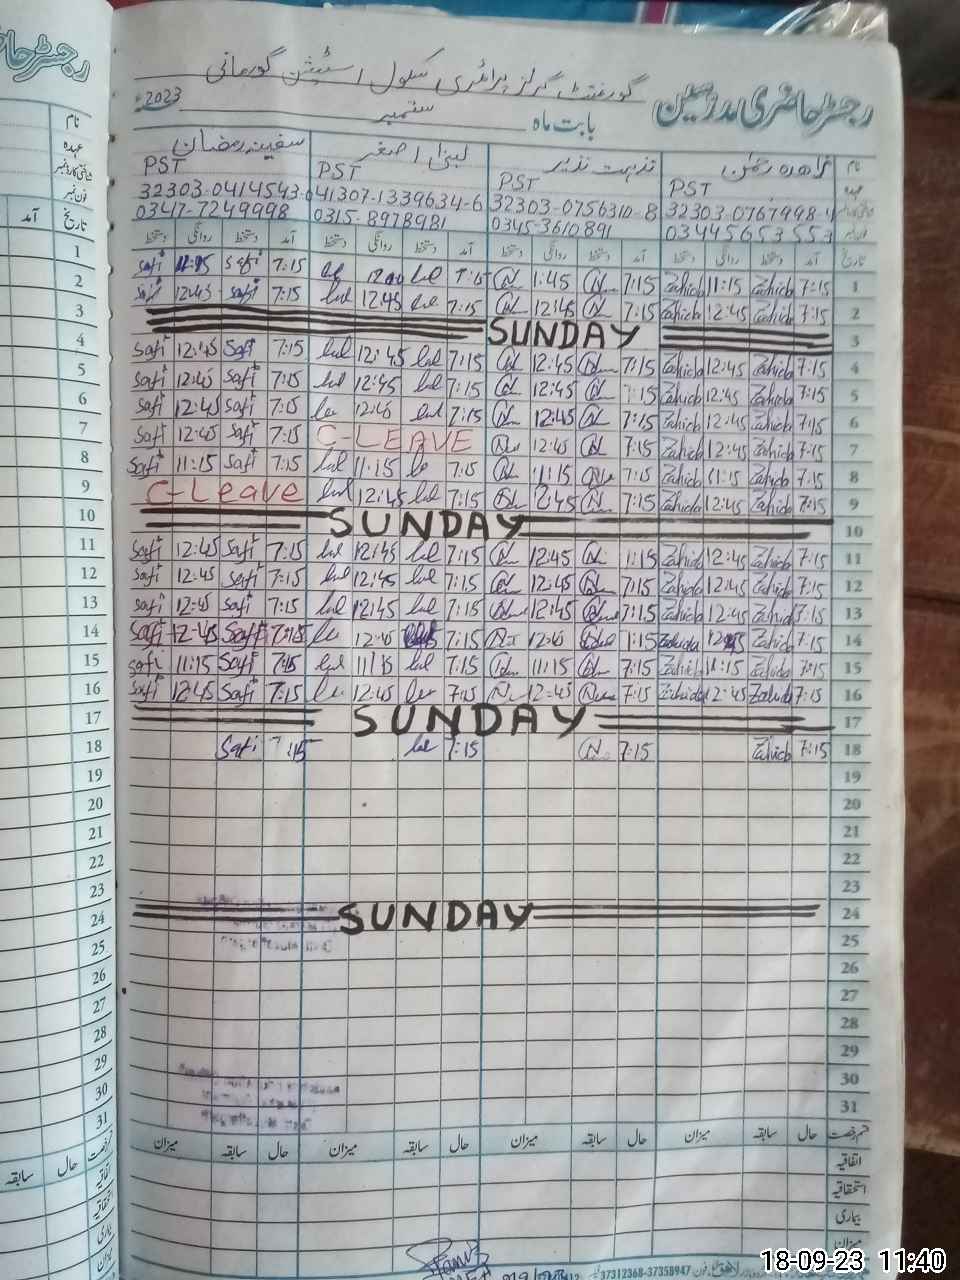 رجسٹر حاضری مدرسین
گورنمنٹ گرلز پرائمری سکول اسٹیشن گورمانی
بابت ماہ ستمبر 2023ء
نام زاہدہ رحمٰن نزہت نذیر لبنیٰ اصغر سفینہ رمضان
عہدہ PST PST PST PST
32303-0756310-8 41307-1339634-6 32303-0414543-0
03445653553 0345-3610891 0315-8978981 0347-7249998
تاریخ آمد دستخط روانگی دستخط آمد دستخط روانگی دستخط آمد دستخط روانگی دستخط آمد دستخط روانگی دستخط
1 7:15 Zahida 11:15 Zahida 7:15 1:45 7:15 7:15 Safi 11:15 Safi
2 7:15 Zahida 12:45 Zahida 7:15 12:45 7:15 12:45 7:15 Safi 12:45 Safi
3 SUNDAY
4 7:15 Zahida 12:45 Zahida 7:15 12:45 7:15 12:45 7:15 Safi 12:45 Safi
5 7:15 Zahida 12:45 Zahida 7:15 12:45 7:15 12:45 7:15 Safi 12:45 Safi
6 7:15 Zahida 12:45 Zahida 7:15 12:45 7:15 12:45 7:15 Safi 12:45 Safi
7 7:15 Zahida 12:45 Zahida 7:15 12:45 C-LEAVE 7:15 Safi 12:45 Safi
8 7:15 Zahida 11:15 Zahida 7:15 11:15 7:15 11:15 7:15 Safi 11:15 Safi
9 7:15 Zahida 12:45 Zahida 7:15 12:45 7:15 12:45 C-Leave
10 SUNDAY
11 7:15 Zahida 12:45 Zahida 1:15 12:45 7:15 12:45 7:15 Safi 12:45 Safi
12 7:15 Zahida 12:45 Zahida 7:15 12:45 7:15 12:45 7:15 Safi 12:45 Safi
13 7:15 Zahida 12:45 Zahida 7:15 12:45 7:15 12:45 7:15 Safi 12:45 Safi
14 7:15 Zahida 12:45 Zahida 1:15 12:45 7:15 12:45 7:15 Safi 12:45 Safi
15 7:15 Zahida 11:15 Zahida 7:15 11:15 7:15 11:15 7:15 Safi 11:15 Safi
16 7:15 Zahida 12:45 Zahida 7:15 12:45 7:15 12:45 7:15 Safi 12:45 Safi
17 SUNDAY
18 7:15 Zahida 7:15 7:15 7:15 Safi
19
20
21
22
23
24 SUNDAY
25
26
27
28
29
30
31
قسم رخصت حال سابقہ میزان حال سابقہ میزان حال سابقہ میزان حال سابقہ میزان
اتفاقیہ
استحقاقیہ
بیماری
میزان
37312368-37358947
رجسٹر حا
نام
عہدہ
شناختی کارڈ نمبر
فون نمبر
تاریخ آمد
1
2
3
4
5
6
7
8
9
10
11
12
13
14
15
16
17
18
19
20
21
22
23
24
25
26
27
28
29
30
31
قسم رخصت حال سابقہ
اتفاقیہ
استحقاقیہ
بیماری
میزان
18-09-23 11:40